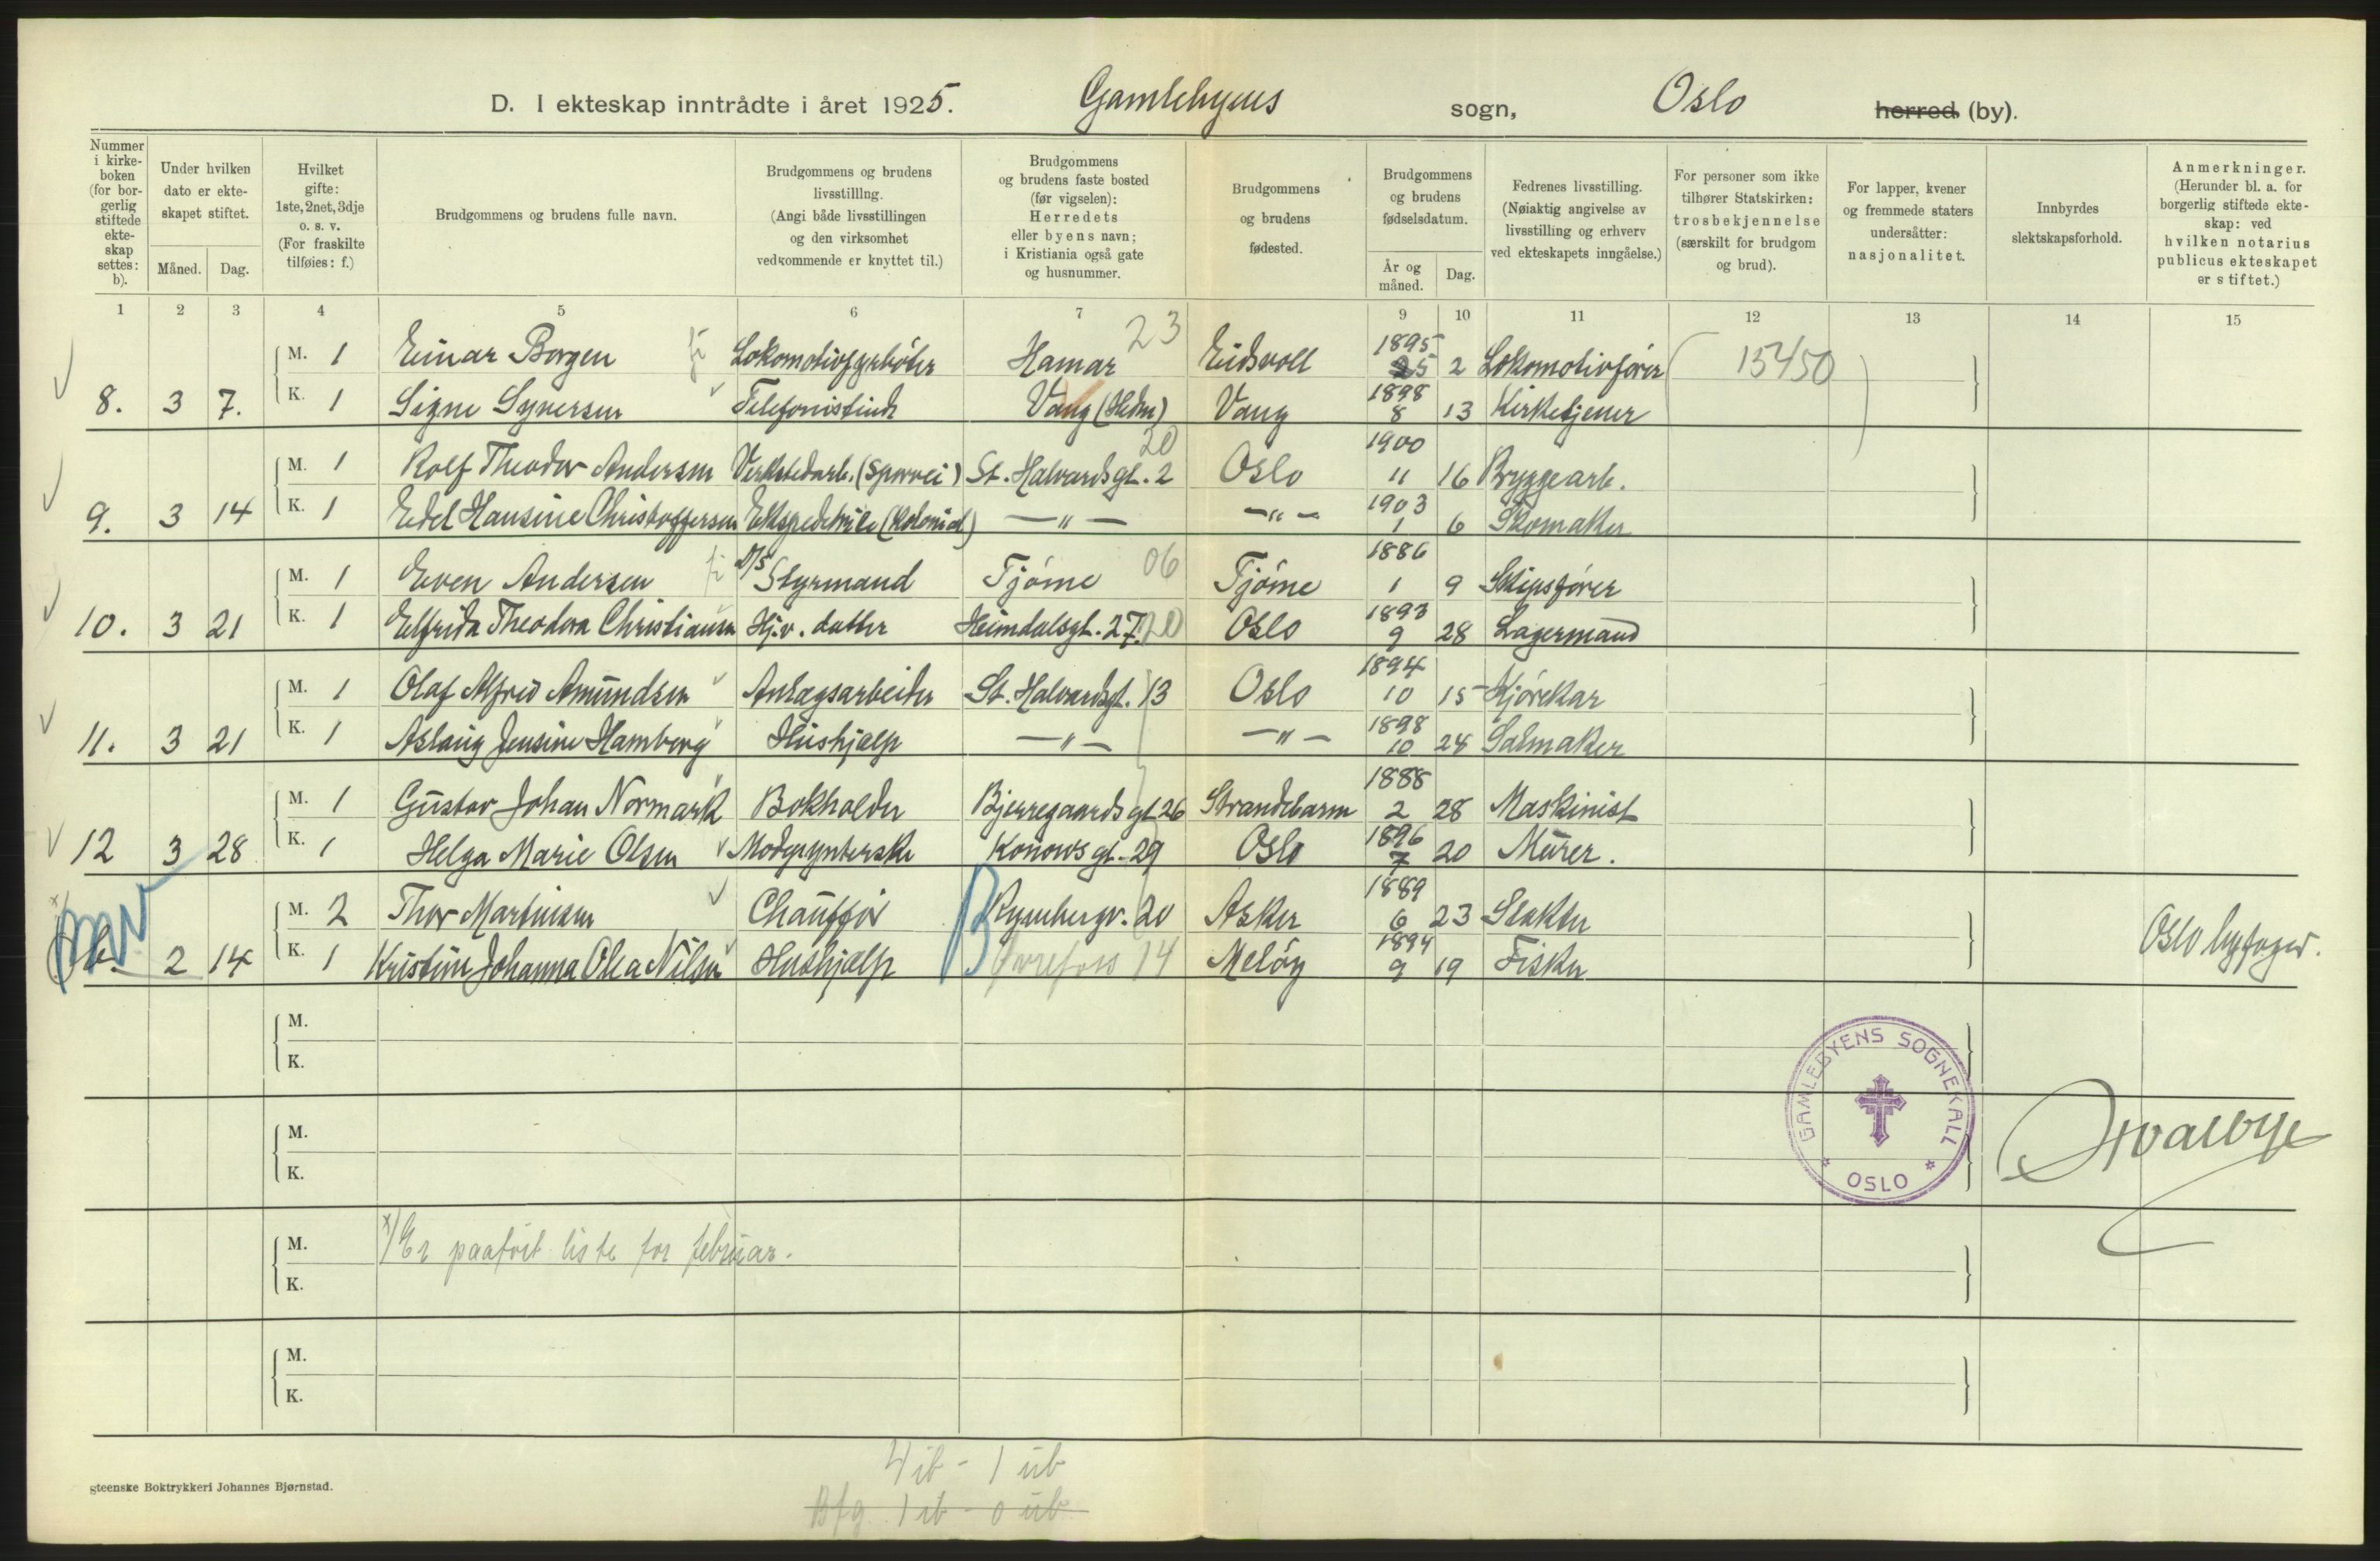 D. I ekteskap inntrådte i året 1925. Gamlebyens sogn, Oslo herred (by).
Nummer i kirkeboken (for borgerlig stiftede ekteskap settes: b).
Under hvilken dato er ekteskapet stiftet.
Måned. Dag.
Hvilket gifte: 1ste, 2net, 3dje o. s. v. (For fraskilte tilføies: f.)
Brudgommens og brudens fulle navn.
Brudgommens og brudens livsstilling. (Angi både livsstillingen og den virksomhet vedkommende er knyttet til.)
Brudgommens og brudens faste bosted (før vigselen): Herredets eller byens navn; i Kristiania også gate og husnummer.
Brudgommens og brudens fødested.
Brudgommens og brudens fødselsdatum.
År og måned. Dag.
Fedrenes livsstilling. (Nøiaktig angivelse av livsstilling og erhverv ved ekteskapets inngåelse.)
For personer som ikke tilhører Statskirken: trosbekjennelse (særskilt for brudgom og brud).
For lapper, kvener og fremmede staters undersåtter: nasjonalitet.
Innbyrdes slektskapsforhold.
Anmerkninger. (Herunder bl. a. for borgerlig stiftede ekteskap: ved hvilken notarius publicus ekteskapet er stiftet.)
1 2 3 4 5 6 7 9 10 11 12 13 14 15
M. 1 Einar Borgen Lokomotivfyrbøter Hamar 23 Eidsvoll 1895 5 2 Lokomotivfører (15450)
8. 3 7. K. 1 Signe Syversen Telefonistinde Vang (Hedm) Vang 1898 8 13 Kirketjener
M. 1 Rolf Theodor Andersen Verkstedarb. (Sporvei) St. Halvardsgt. 2 20 Oslo 1900 11 16 Bryggearb.
9. 3 14 K. 1 Edel Hansine Christoffersen Ekspeditrise (Kolonial) — " — — " — 1903 1 6 Skomaker
M. 1 Even Andersen D/S Styrmand Tjøme 06 Tjøme 1886 1 9 Skipsfører
10. 3 21 K. 1 Elfrida Theodora Christiansen Hj.v. datter Heimdalsgt. 27. 20 Oslo 1893 9 28 Lagermand
M. 1 Olaf Alfred Amundsen Anlægsarbeider St. Halvardsgt. 13 Oslo 1894 10 15 Kjørekar
11. 3 21 K. 1 Aslaug Jensine Hamborg Hushjælp — " — — " — 1898 10 24 Salmaker
M. 1 Gustav Johan Normark Bokholder Bjerregaards gt 26 Strandebarm 1888 2 28 Maskinist
12 3 28 K. 1 Helga Marie Olsen Modesynterske Konows gt. 29 Oslo 1896 7 20 Murer.
M. 2 Thor Martinsen Chauffør Ryenbergv. 20 Asker 1889 6 23 Slakter
2 14 K. 1 Kristine Johanna Olea Nilsen Hushjælp 14 Meløy 1894 9 19 Fisker Oslo byfoged.
M.
K.
M.
K.
GAMLEBYENS SOGNEKALL
* OSLO *
M. x) Er paaført liste for februar.
K.
M.
K.
4 ib - 1 ub
Bfg. 1 ib - 0 ub
steenske Boktrykkeri Johannes Bjørnstad.